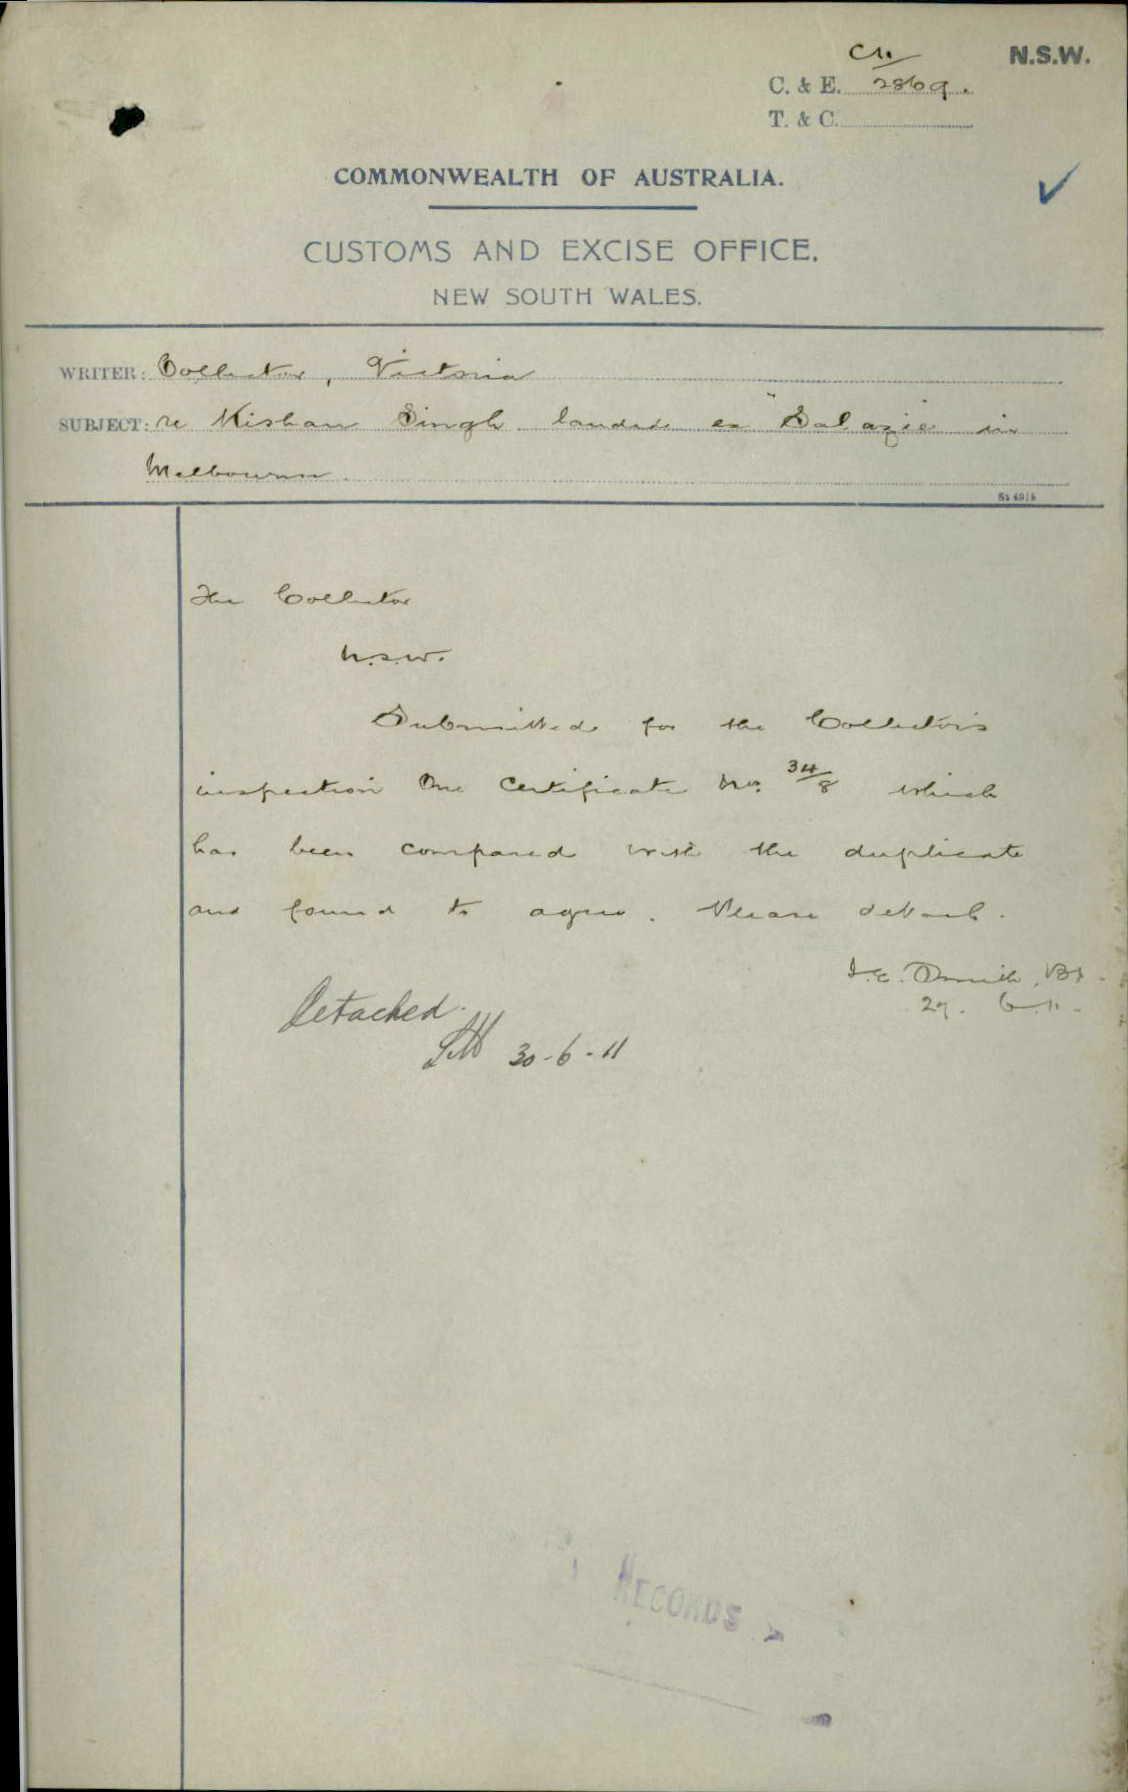 N.S.W.
C. & E. C11/2869.
T. & C.
COMMONWEALTH OF AUSTRALIA.
CUSTOMS AND EXCISE OFFICE.
NEW SOUTH WALES.
WRITER: Collector, Victoria
SUBJECT: re Kishan Singh landed ex "Salazie in
Melbourne.
The Collector
N.S.W.
Submitted for the Collector's
inspection One Certificate No. 34/8 which
has been compared with the duplicate
and found to agree. Please detach.
Smith
29. 6. 11.
Detached.
30-6-11
RECORDS